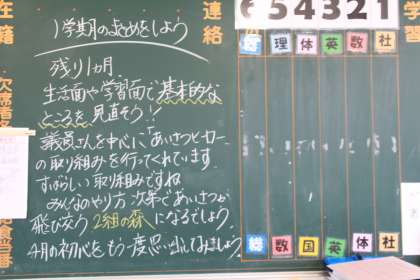 在籍
連絡
学習
6 5 4 3 2 1
1学期のまとめをしよう
残り1ヵ月
生活面や学習面で基本的な
ところを見直そう!!
議員さんを中心に「あいさつヒーロー」
の取り組みを行ってくれています。
すばらしい取り組みですね
みんなのやり方次第であいさつが
飛び交う2組の森になるでしょう。
4月の初心をもう一度思い出してみましょう。
理 体 英 数 社
総 数 国 英 体 社